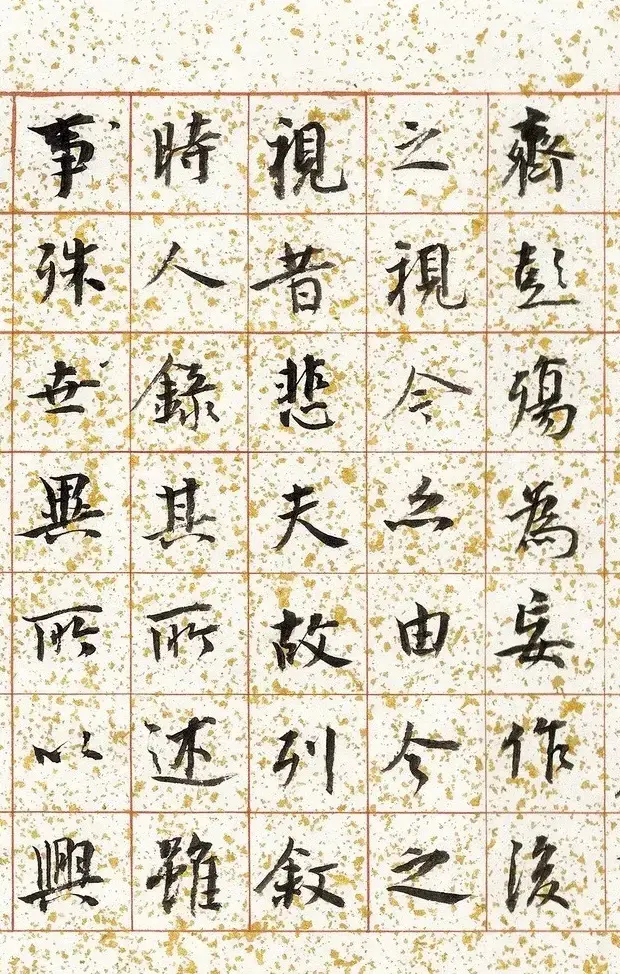 齊彭殤為妄作後
之視今亦由今之
視昔悲夫故列叙
時人錄其所述雖
事殊世異所以興